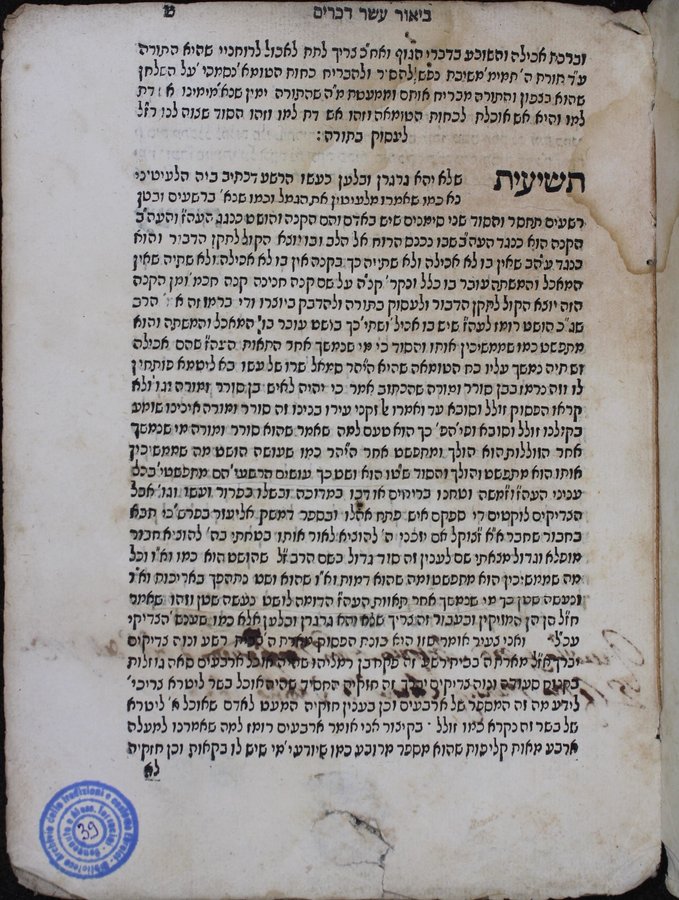 ביאור עשר דברים ט
וברכת אכילה והשובע בדברי הגוף ואח״כ צריך לתת לאכול לרוחניי שהיא התורה
ע״ד תורת ה׳ תמימ׳ משיבת נפש להסיר ולהבריח כחות הטומא׳ נסמכי׳ על השלחן
שהוא בצפון והתורה מבריח אותם וממעטת מ״ה שהתורה ימין שנא׳ מימינו אש דת
למו והיא אש אוכלת לכחות הטומאה וזהו אש דת למו וזהו הסוד שצוה לנו רז״ל
לעסוק בתורה:
תשיעית שלא יהא גרגרן ובלען כעשו הרשע דכתיב ביה הלעיטיני
נא כמו שאמרו מלעיטין את הגמל וכמו שנא׳ ברשעים ובטן
רשעים תחסר והסוד שני סימנים שיש באדם והם הקנה והושט כנגד העה״ז והעה״ב
הקנה הוא כנגד העה״ב שבו נכנס הרוח אל הלב ובו יוצא הקול לתקן הדבור והוא
כנגד עה״ב שאין בו לא אכילה ולא שתייה כך בקנה אין בו לא אכילה ולא שתיה שאין
המאכל והמשתה עובר בו כלל ונקר׳ קנ״ה על שם קנה חכינה קנה חכמ׳ ומן הקנה
הזה יוצא הקול לתקן הדבור ולעסוק בתורה ולהדבק ביוצרו ודי ברמוזה הרב
שנ״כ הושט רומז לעה״ז שיש בו אכיל׳ ושתי׳ כך בושט עובר בו המאכל והמשתה והוא
מתפשט כמו שממשיכין אותו והסוד כי מי שנמשך אחר התאות העה״ז שהם אכילה
ושתיה נמשך עליו כח הטומאה שהיא היה״ר סמאל שרו של עשו בא ליטמא פותחין
לו וזה נרמז בבן סורר ומורה שהכתוב אמר כי יהיה לאיש בן סורר ומורה וגו׳ ולא
קראו הפסוק זולל וסובא עד ואמרו אל זקני עירו בנינו זה סורר ומורה איננו שומע
בקולנו זולל וסובא ופי׳ הפ׳ כך הוא טעם למה שאמר שהוא סורר ומורה מי שנמשך
אחר הזוללות הוא הולך ומתפשט אחר היה״ר כמו שעושה הושט מה שממשיכין
אותו הוא מתפשט והולך והסוד שטו הוא ושט כך עושים הרשעי׳ הם מתפשטי׳ בכל
עניני העה״ז ומשה וטחנו בריחים או דכו במדוכה ובשלו בפרור ועשו וגו׳ אבל
הצדיקים לוקטים די ספקם איש פתח אהלו ובספר דמשק אליעזר בפרש״כי תבא
בחבור שחבר א״א זצוק״ל אם יזכני ה׳ להוציא לאור אותו׳ בטחתי בה׳ להוציא חבור
מופלא וגדול מצאתי שם לענין זה סוד גדול בשם הרב ז״ל שהושט הוא כמו וא״ו וכל
מה שממשיכין הוא מתפשט ומה שהוא דמות וא״ו שהוא ושט נתהפך באריכות וא״ו
ונעשה שטן כך מי שנמשך אחר תאוות העה״ז הדומה לושט נעשה שטן וזהו שאמר
חז״ל הן הן המזיקין ובעבור זה צריך שלא יהא גרגרן ובלען אלא כמו שעש׳ הצדיקי׳
עכ״ל ואני צעיר אומר שזו היא כונת הפסוק מארת ה׳ בבית רשע ונוה צדיקים
יברך חז״ל מארת ה׳ בבית רשע זה פקח בן רמליהו שהיה אוכל ארבעים סאה גוזלות
בקנוח סעודה ונוה צדיקים יברך זה חזקיה החסיד שהיה אוכל בשר ליטרא צריכי׳
לידע מה זה המספר של ארבעים וכן בענין חזקיה המעט לאדם שאוכל א׳ ליטרא
של בשר זה נקרא כמו זולל ־ בקיצור אני אומר ארבעים רומז למה שאמרנו למעלה
ארבע מאות קליפות שהוא מספר מרובע כמו שיודעי׳ מי שיש לו בקאות וכן חזקיה
לא
39